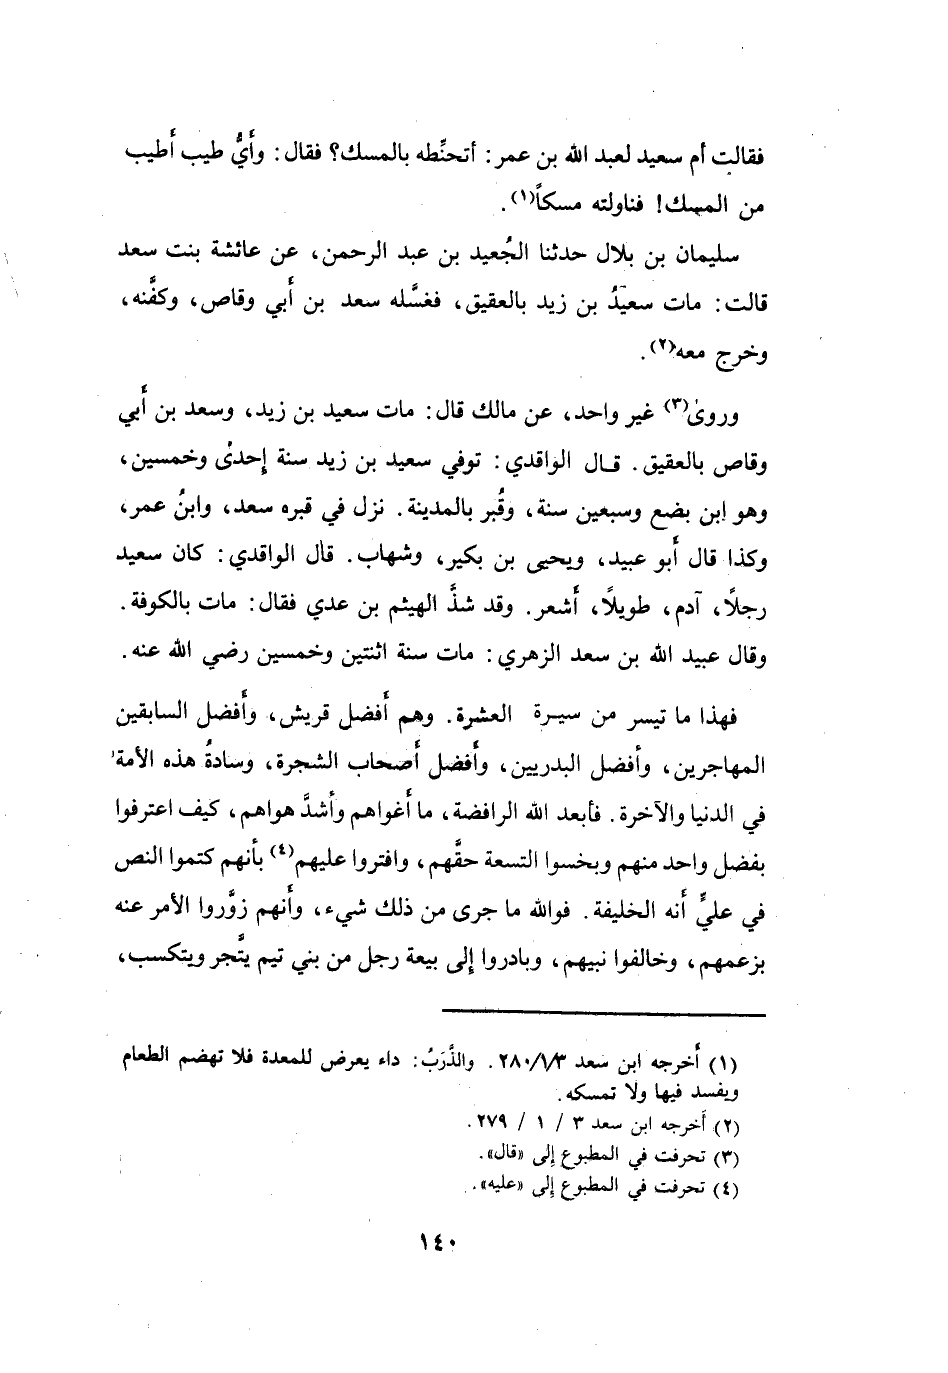 فقالت أم سعيد لعبد الله بن عمر: أتحنِّطه بالمسك؟ فقال: وأَيُّ طيب أَطيب
من المسك! فناولته مسكاً(١).
سليمان بن بلال حدثنا الجُعيد بن عبد الرحمن، عن عائشة بنت سعد
قالت: مات سعيدُ بن زيد بالعقيق، فغسَّله سعد بن أَبي وقاص، وكفَّنه،
وخرج معه(٢).
وروىٰ(٣) غير واحد، عن مالك قال: مات سعيد بن زيد، وسعد بن أَبي
وقاص بالعقيق. قال الواقدي: توفي سعيد بن زيد سنة إحدىٰ وخمسين،
وهو ابن بضع وسبعين سنة، وقُبر بالمدينة. نزل في قبره سعد، وابنُ عمر،
وكذا قال أَبو عبيد، ويحيى بن بكير، وشهاب. قال الواقدي: كان سعيد
رجلًا، آدم، طويلًا، أَشعر. وقد شذَّ الهيثم بن عدي فقال: مات بالكوفة.
وقال عبيد الله بن سعد الزهري: مات سنة اثنتين وخمسين رضي الله عنه.
فهذا ما تيسر من سيرة العشرة. وهم أَفضل قريش، وأَفضل السابقين
المهاجرين، وأفضل البدريين، وأَفضل أَصحاب الشجرة، وسادةُ هذه الأمة
في الدنيا والآخرة. فأبعد الله الرافضة، ما أَغواهم وأَشدَّ هواهم، كيف اعترفوا
بفضل واحد منهم وبخسوا التسعة حقَّهم، وافتروا عليهم(٤) بأنهم كتموا النص
في عليٍّ أَنه الخليفة. فوالله ما جرى من ذلك شيء، وأَنهم زوَّروا الأمر عنه
بزعمهم، وخالفوا نبيهم، وبادروا إلى بيعة رجل من بني تيم يتَّجر ويتكسب،
(١) أَخرجه ابن سعد ٢٨٠/١/٣. والذَّرَبُ: داء يعرض للمعدة فلا تهضم الطعام
ويفسد فيها ولا تمسكه.
(٢) أَخرجه ابن سعد ٣ / ١ / ٢٧٩.
(٣) تحرفت في المطبوع إلى «قال».
(٤) تحرفت في المطبوع إلى «عليه».
١٤٠